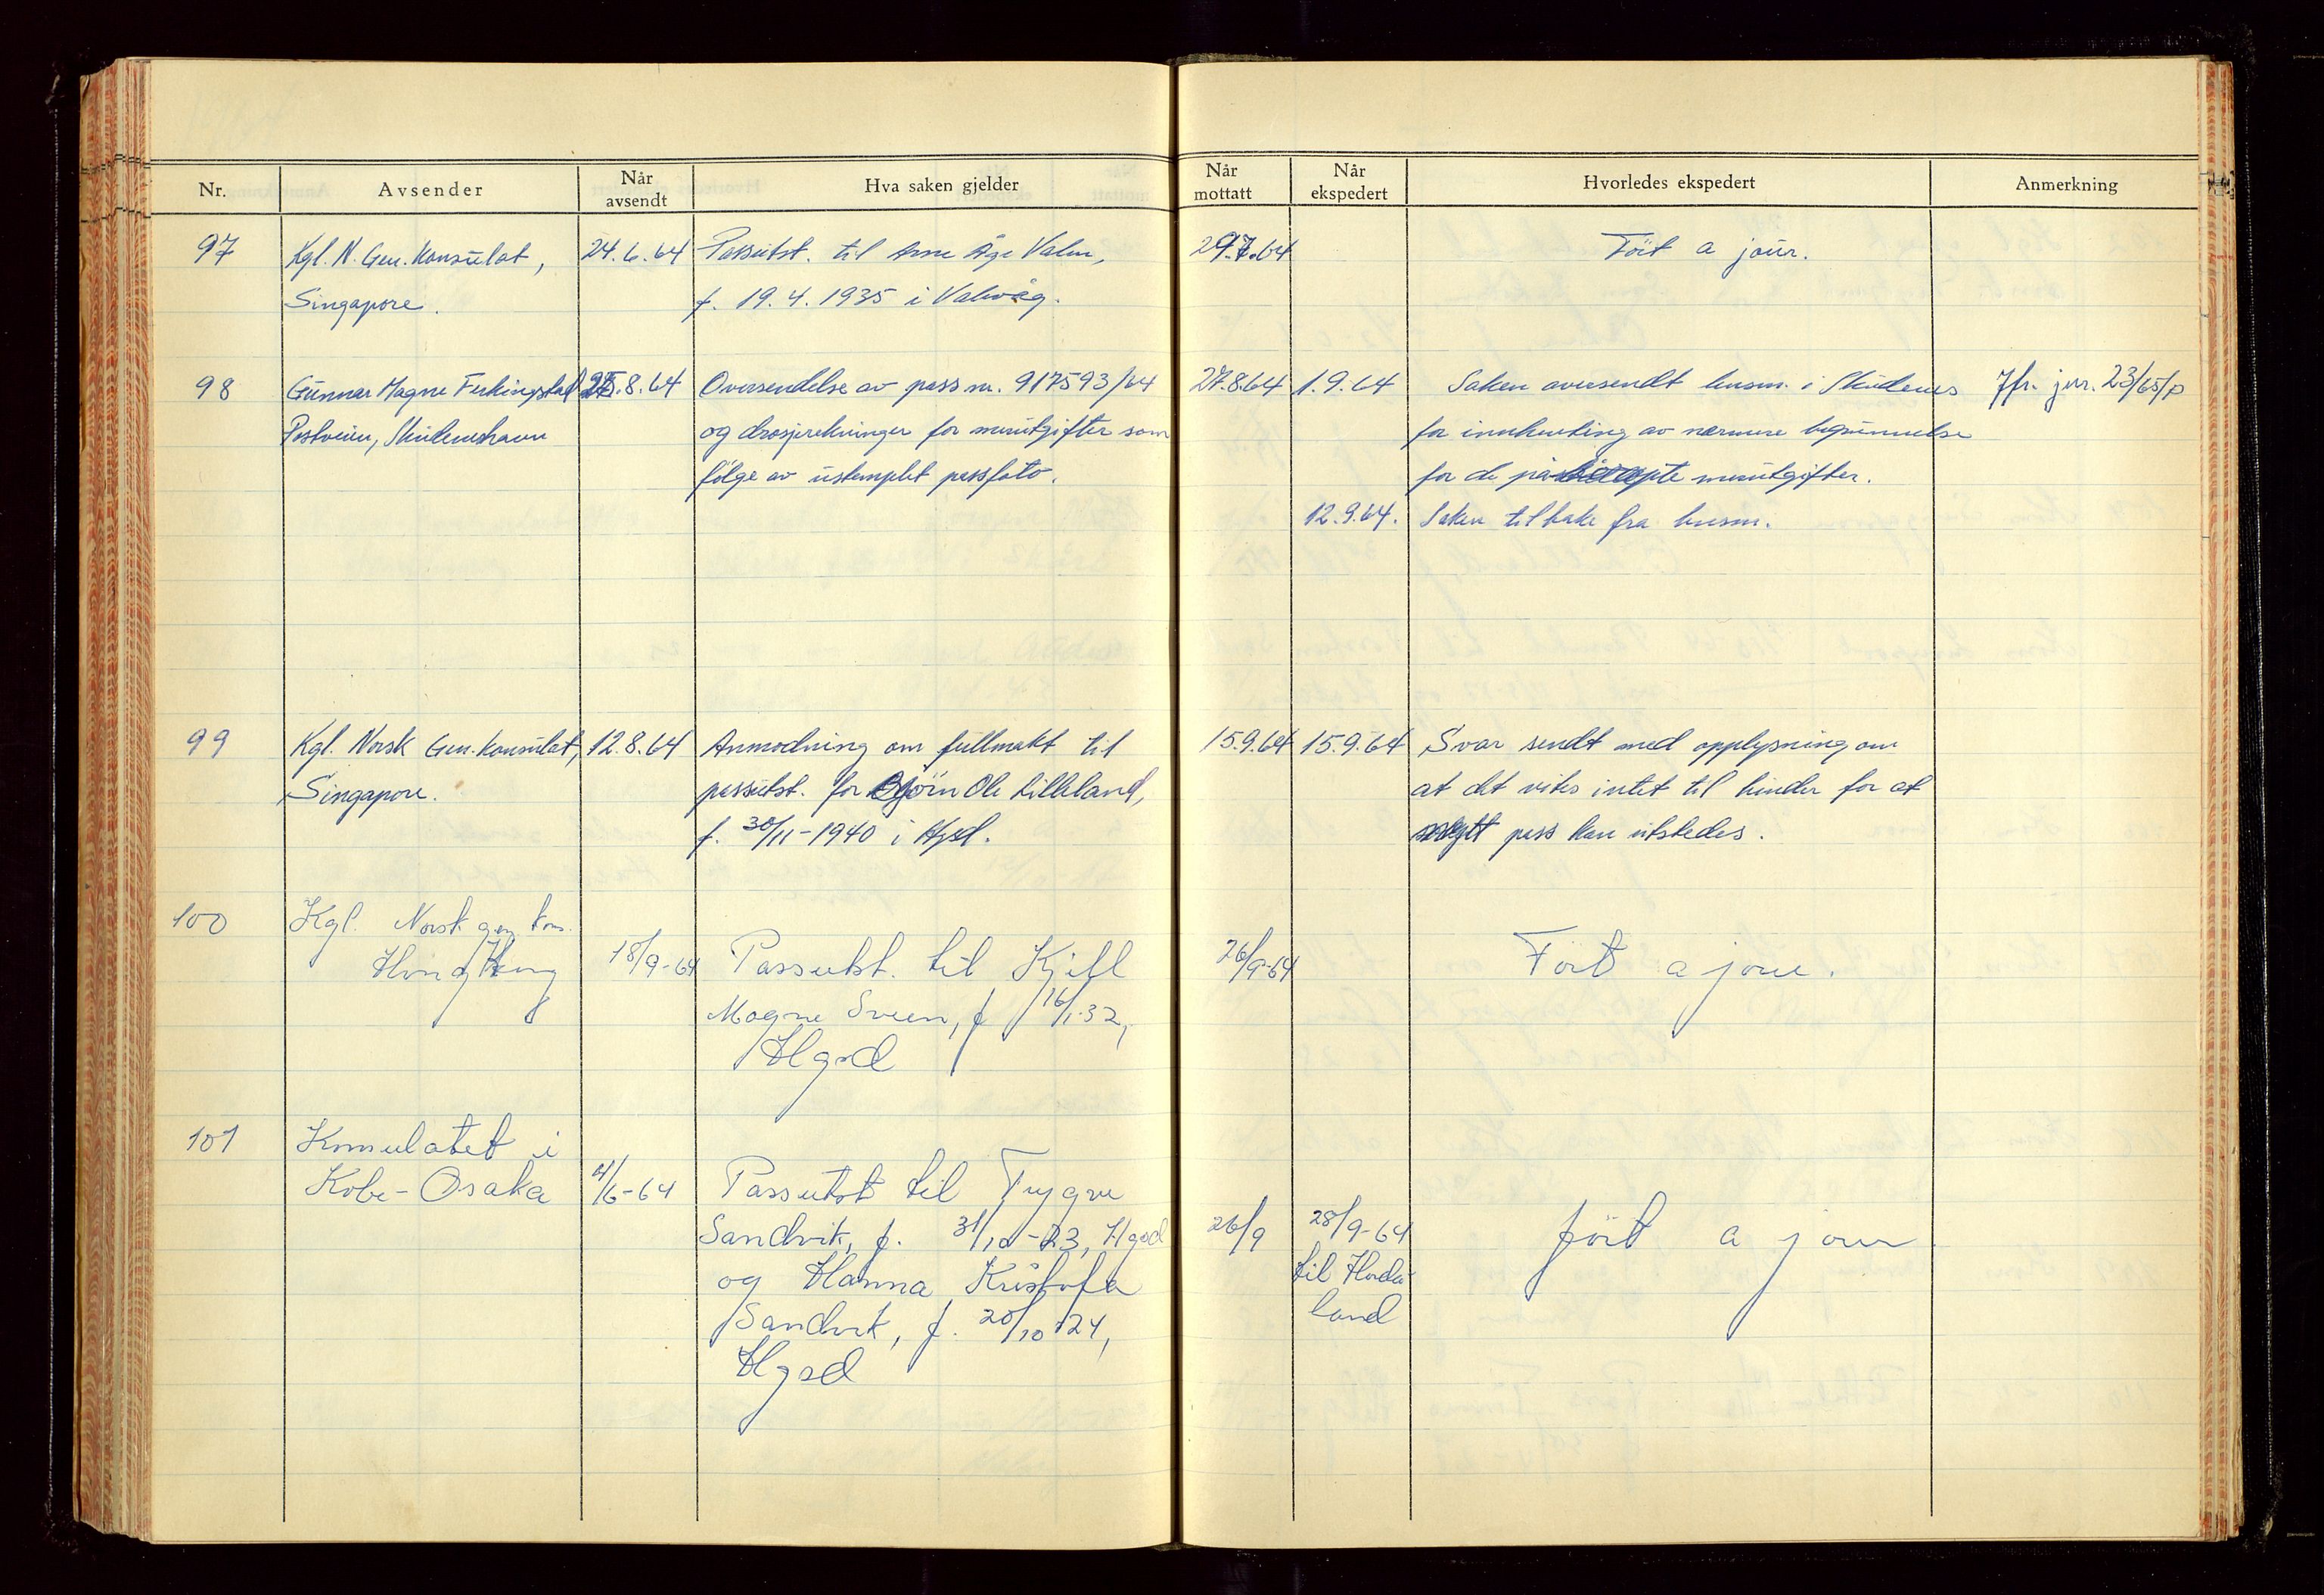 Nr.
Avsender
Når avsendt
Hva saken gjelder
Når mottatt
Når ekspedert
Hvorledes ekspedert
Anmerkning
97
Kgl. N. Gen. Konsulat,
Singapore.
24.6.64
Passutst. til Arne Åge Valen,
f. 19.4.1935 i Valevåg.
29.7.64
Ført a jour.
98
Gunnar Magne Ferkingstad
Postveien, Skudeneshavn
25.8.64
Oversendelse av pass nr. 917593/64
og drosjerekninger for merutgifter som
følge av ustemplet passfoto.
27.8.64
1.9.64
Saken oversendt lensm. i Skudenes
for innhenting av nærmere begrunnelse
for de merutgifter.
12.9.64.
Saken tilbake fra lensm.
Jfr. jnr. 23/65/p
99
Kgl. Norsk Gen. konsulat,
Singapore.
12.8.64
Anmodning om fullmakt til
passutst. for Bjørn Ole Lilleland,
f. 30/11-1940 i Hgsd.
15.9.64
15.9.64
Svar sendt med opplysning om
at det vites intet til hinder for at
nytt pass kan utstedes.
100
Kgl. Norsk gen kons.
Hong Kong
18/9-64
Passutst. til Kjell
Magne Sveen, f 16/1-32,
Hgsd
26/9-64
Ført a jour.
101
Konsulatet i
Kobe-Osaka
4/6-64
Passutst til Trygve
Sandvik, f. 31/10-23, Hgsd
og Hanna Kristofa
Sandvik, f. 20/10 24,
Hgsd
26/9
28/9-64
til Horda-
land
ført a jour